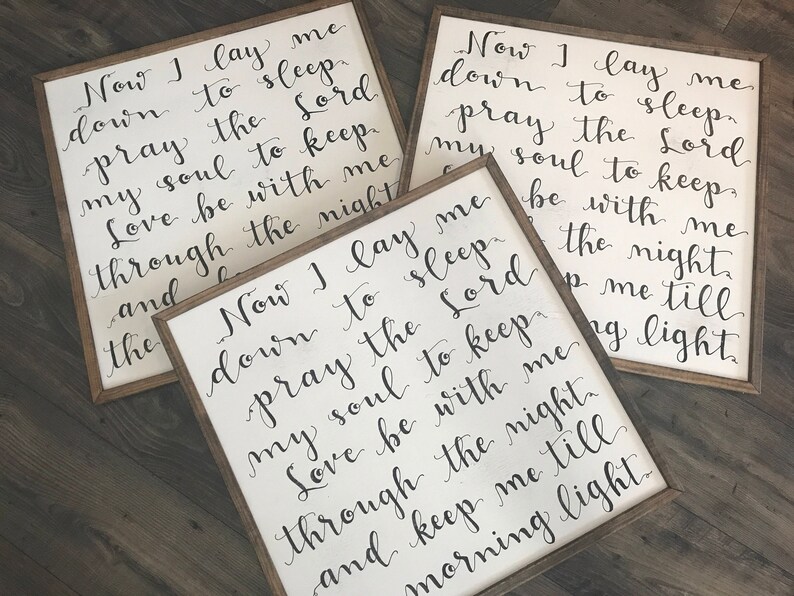 Now I lay me
down to sleep.
pray the Lord
my soul to keep.
Love be with me
through the night
and
the
Now I lay me
down to sleep.
pray the Lord
my soul to keep.
be with me
the night.
me till
light.
Now I lay me
down to sleep.
pray the Lord
my soul to keep.
Love be with me
through the night.
and keep me till
morning light.